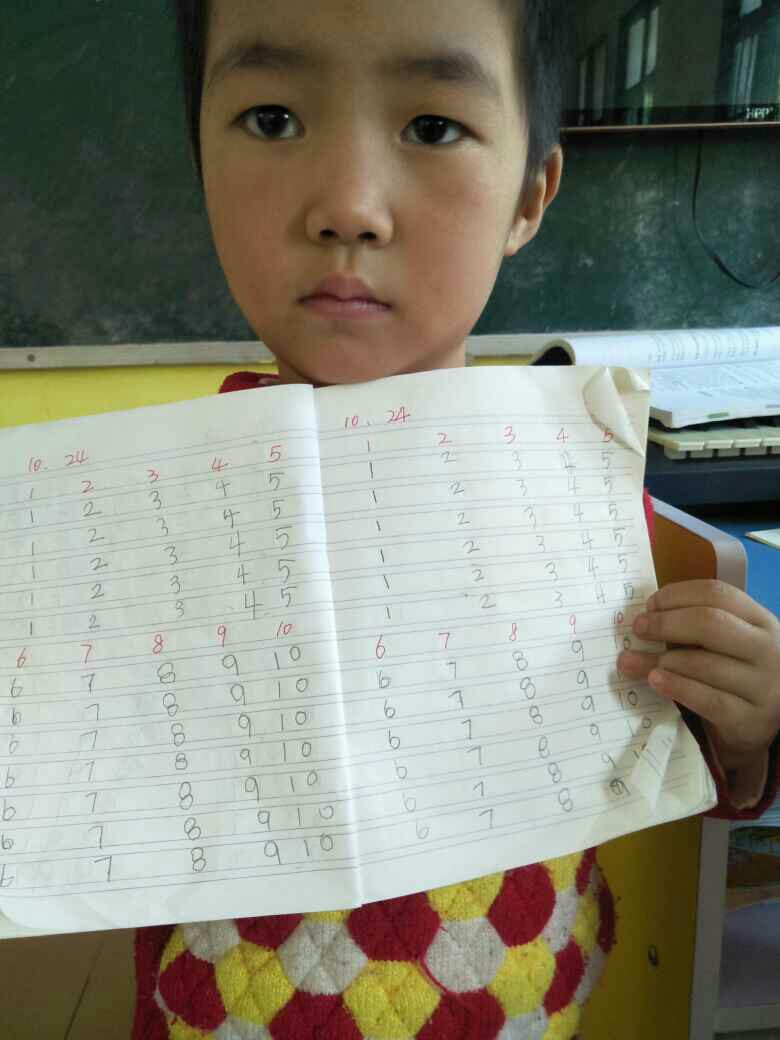 10. 24
1 2 3 4 5
1 2 3 4 5
1 2 3 4 5
1 2 3 4 5
1 2 3 4 5
1 2 3 4 5
6 7 8 9 10
6 7 8 9 10
6 7 8 9 10
6 7 8 9 10
6 7 8 9 10
6 7 8 9 10
6 7 8 9 10
6 7 8 9 10
10. 24
1 2 3 4 5
1 2 3 4 5
1 2 3 4 5
1 2 3 4 5
1 2 3 4 5
1 2 3 4 5
1 2 3 4 5
6 7 8 9 10
6 7 8 9 10
6 7 8 9
6 7 8 9 10
6 7 8 9 10
6 7 8 9
6 7 8 9